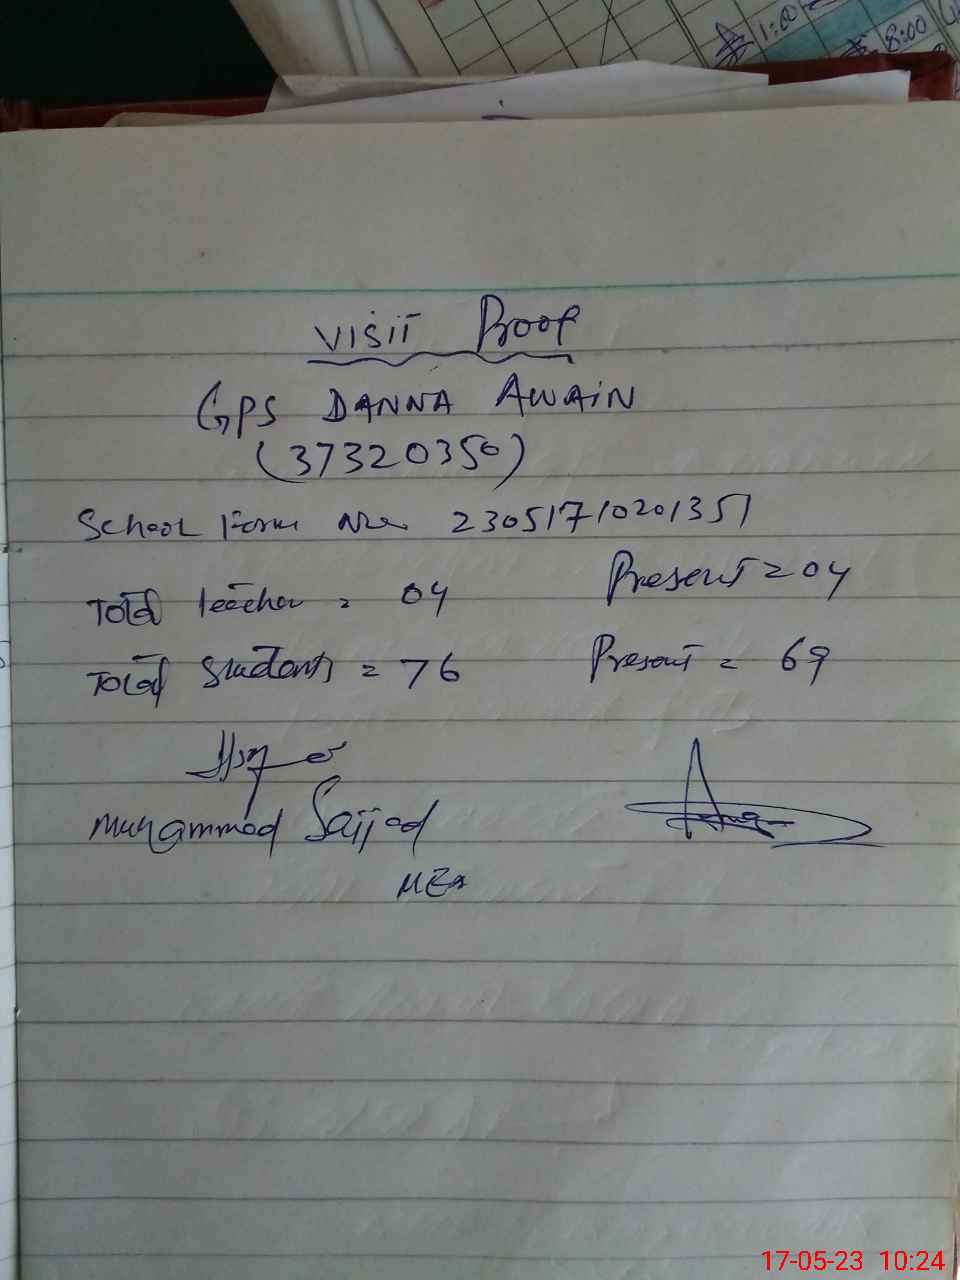 1:00
8:00
Visit Proof
GPS DANNA AWAIN
(37320350)
School Form No. 23051710201351
Total teacher = 04 Present = 04
Total Students = 76 Present = 69
Muhammad Sajjad
MEA
17-05-23 10:24